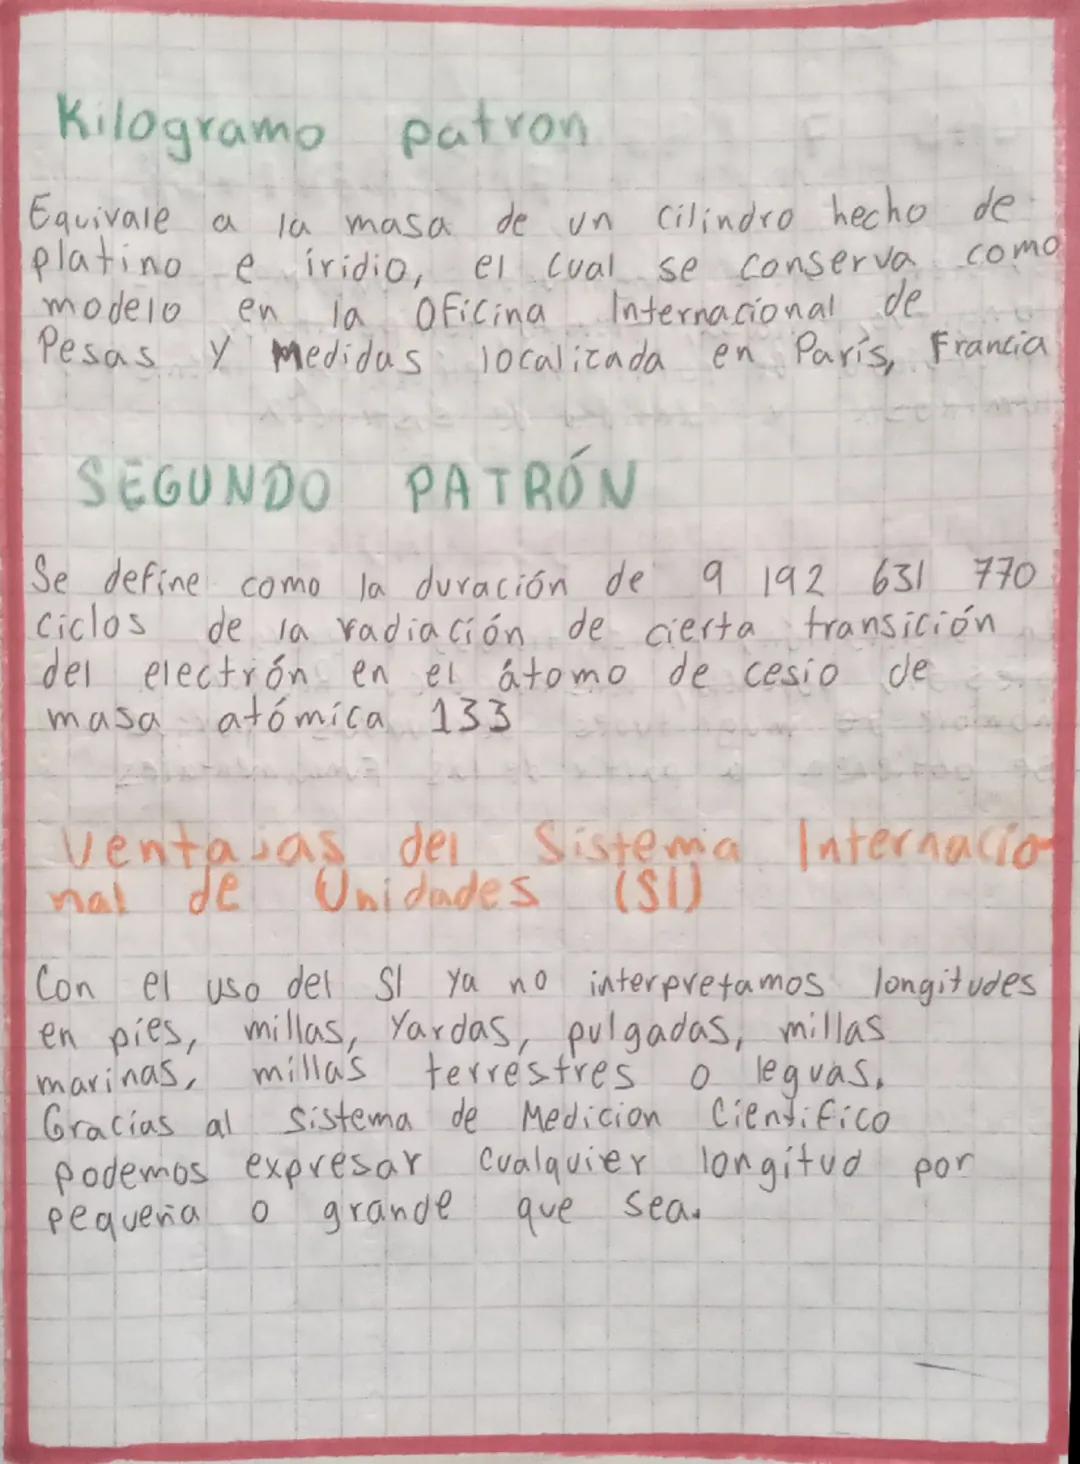 Kilogramo patron
Equivale a la masa de un cilindro hecho de
platino e iridio, el cual se conserva como
modelo en la Oficina Internacional de
Pesas y Medidas localizada en París, Francia
SEGUNDO PATRÓN
Se define como la duración de 9 192 631 770
ciclos de la radiación de cierta transición
del electrón en el átomo de cesio de
masa atómica 133
Ventajas del Sistema Internacio
nal de Unidades (SI)
Con el uso del SI ya no interpretamos longitudes
en pies, millas, Yardas, pulgadas, millas
marinas, millas terrestres o leguas.
Gracias al Sistema de Medicion Cientifico
podemos expresar cualquier longitud por
pequeña o grande que sea.